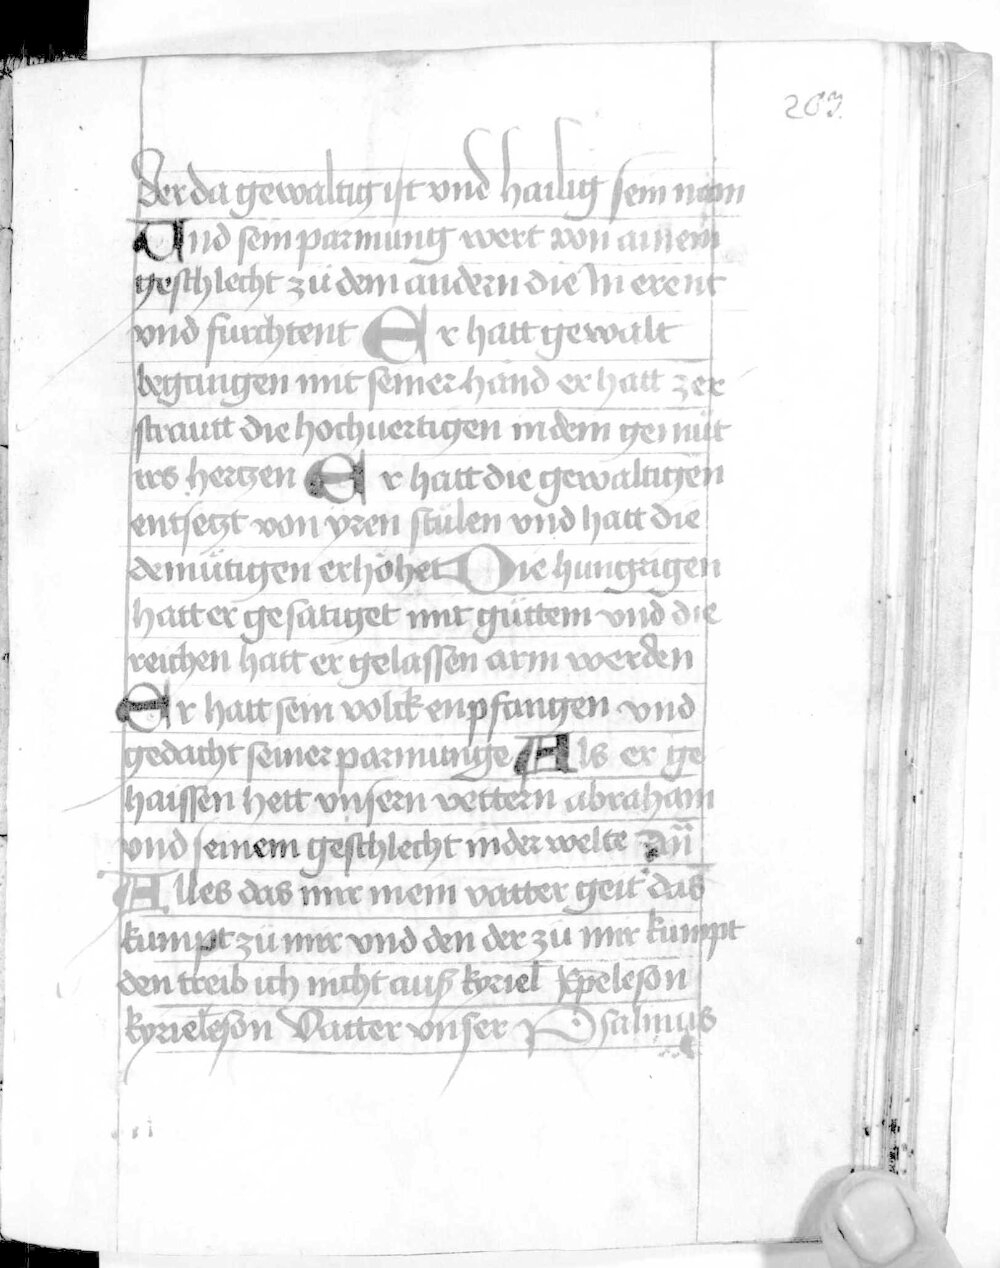 203.
Der da gewaltig ist vnd hailig sein nam
Vnd sein parmung wert von ainem
geschlecht zů dem andern die In erent
vnd furchtent Er hatt gewalt
begangen mit seiner hand er hatt zer
strautt die hochuertigen in dem gemüt
irs hertzen Er hatt die gewaltigen
entsetzt von yren stůlen vnd hatt die
demütigen erhöhet Die hungrigen
hatt er gesatiget mit gůttem vnd die
reichen hatt er gelassen arm werden
Er hatt sein volck enpfangen vnd
gedacht seiner parmunge Als er ge
haissen hett vnsern vettern abraham
vnd seinem geschlecht in der welte
Alles das mir mein vatter geit das
kumpt zů mir vnd den der zů mir kumpt
den treib ich nicht auß kyriel xpeleson
kyrieleson Vatter vnser Psalmus